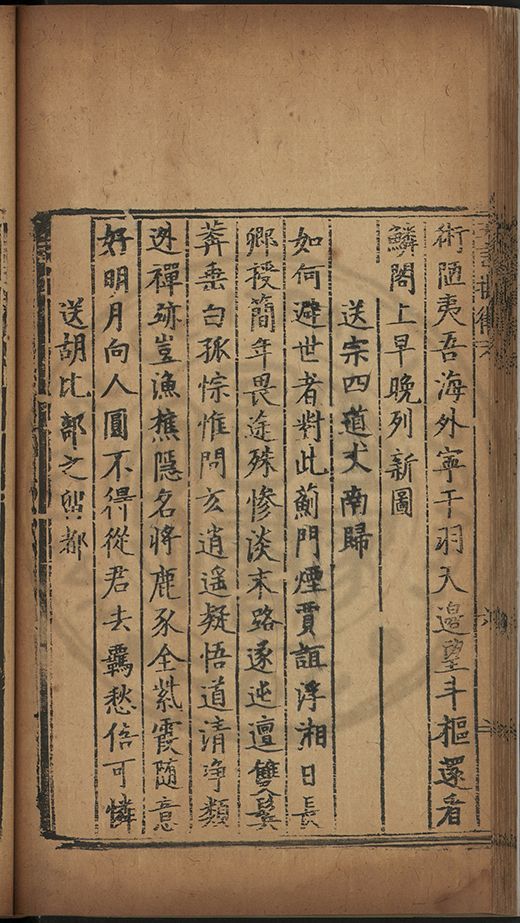 術陋夷吾海外寧干羽天邉望斗樞還看
鱗閣上早晚列新圖
送宗四道丈南歸
如何避世者對此薊門煙賈誼浮湘日長
卿授簡年畏途殊慘淡末路遂迍邅雙鬢
莾垂白孤悰惟問玄逍遥疑悟道清净類
迯禪跡豈漁樵隱名將鹿豕全紫霞随意
好明月向人圓不得從君去覊愁倍可憐
送胡比部之留都